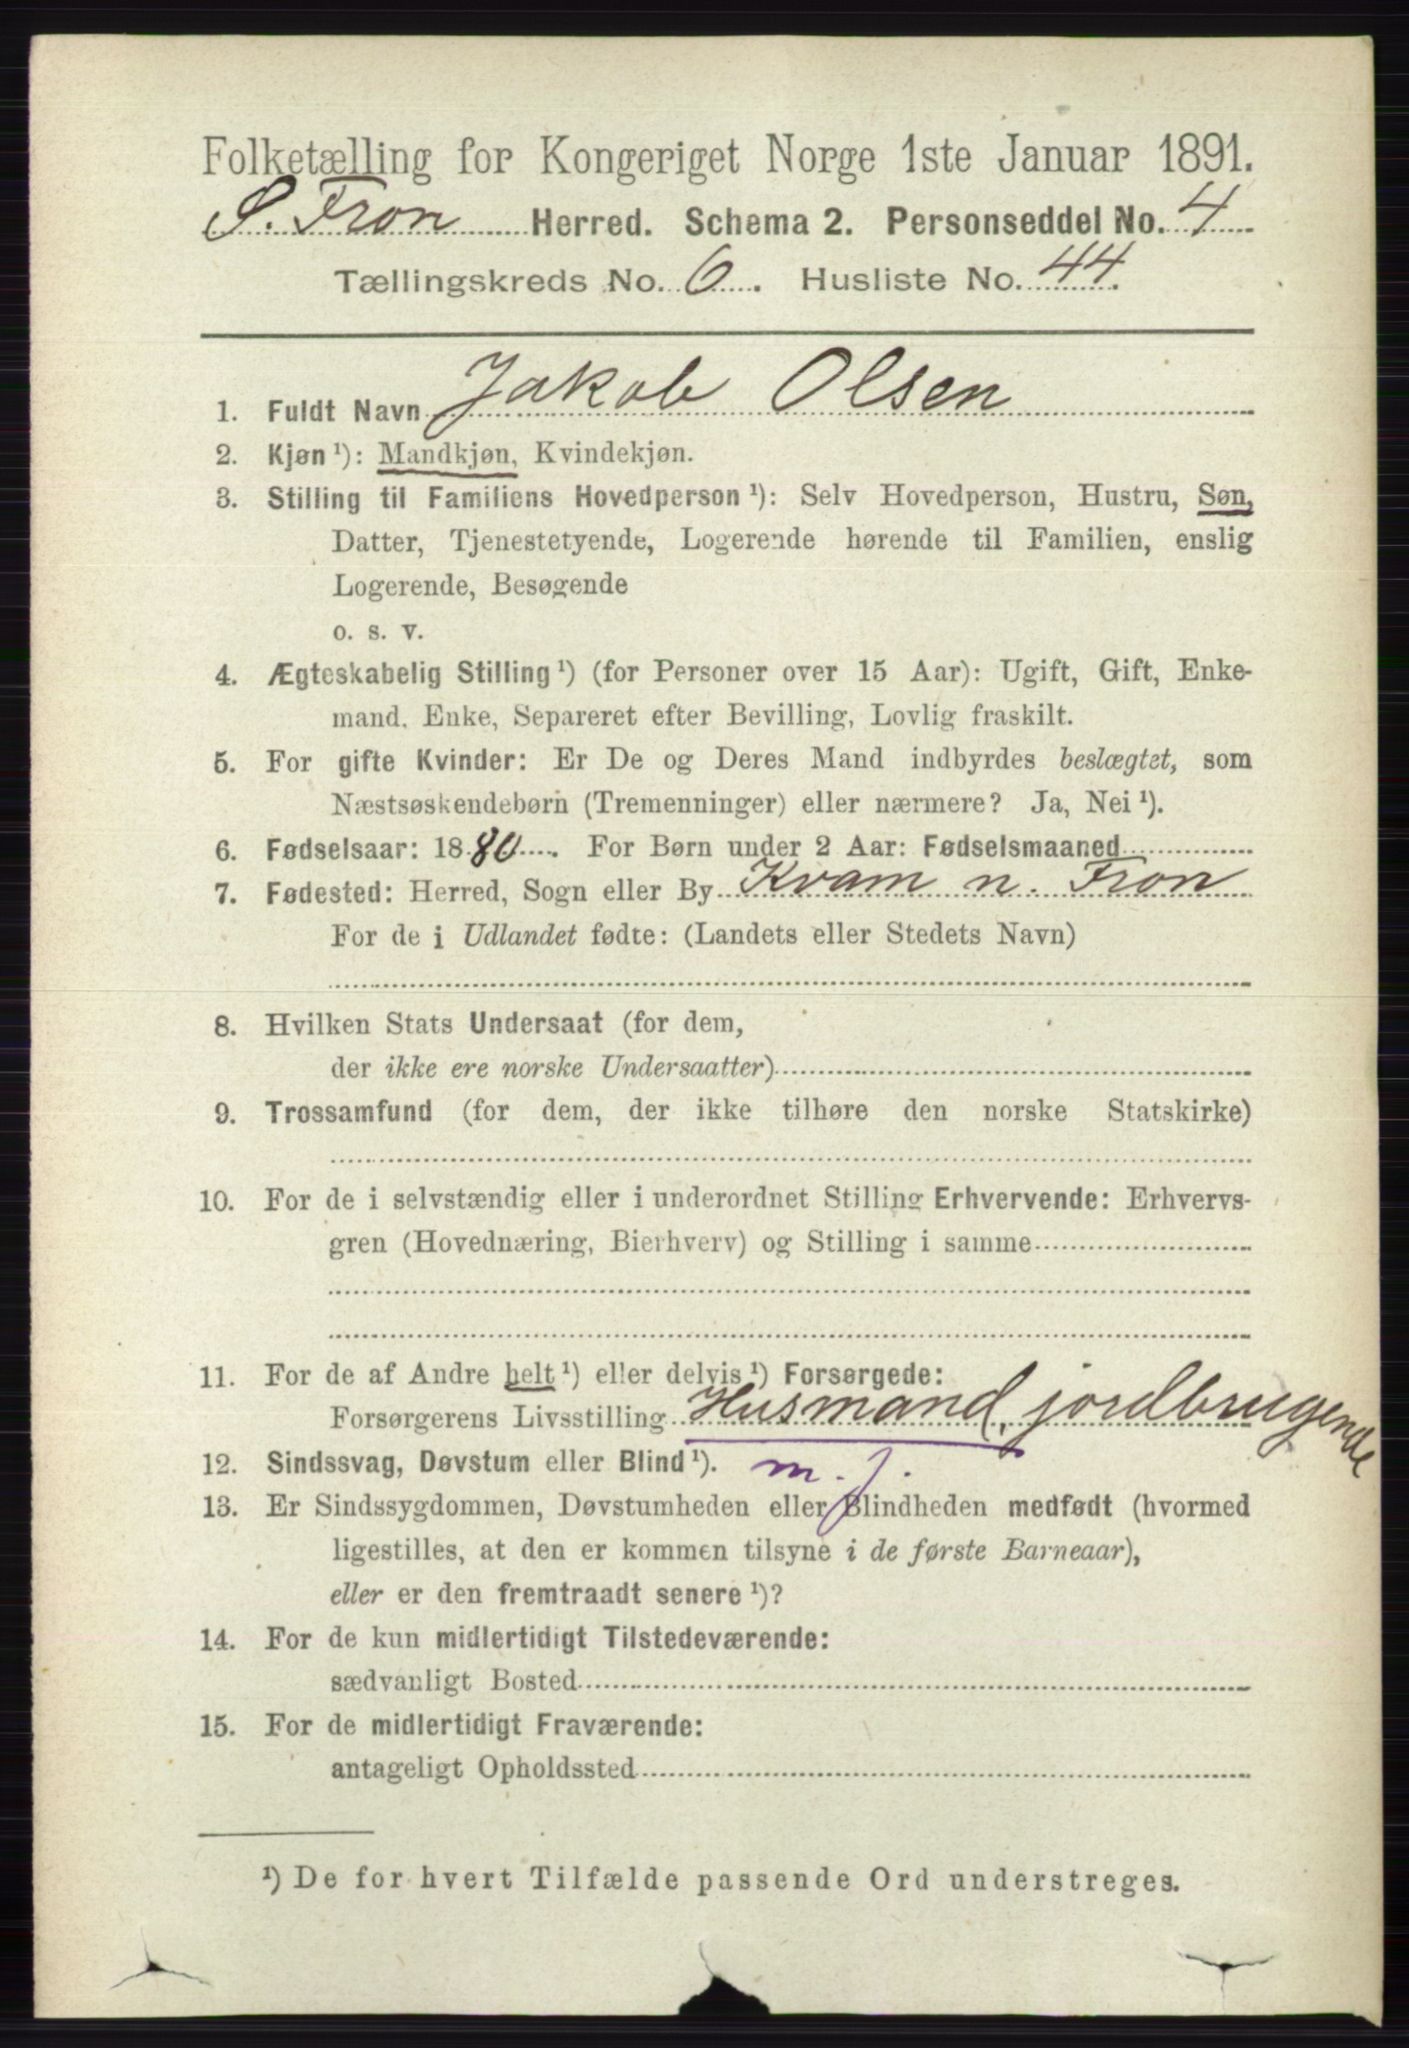 Folketælling for Kongeriget Norge 1ste Januar 1891.
S. Fron Herred. Schema 2. Personseddel No. 4
Tællingskreds No. 6. Husliste No. 44.
1. Fuldt Navn Jakob Olsen
2. Kjøn ¹): Mandkjøn, Kvindekjøn.
3. Stilling til Familiens Hovedperson ¹): Selv Hovedperson, Hustru, Søn,
Datter, Tjenestetyende, Logerende hørende til Familien, enslig
Logerende, Besøgende
o. s. v.
4. Ægteskabelig Stilling ¹) (for Personer over 15 Aar): Ugift, Gift, Enke-
mand, Enke, Separeret efter Bevilling, Lovlig fraskilt.
5. For gifte Kvinder: Er De og Deres Mand indbyrdes beslægtet, som
Næstsøskendebørn (Tremenninger) eller nærmere? Ja, Nei ¹).
6. Fødselsaar: 1880. For Børn under 2 Aar: Fødselsmaaned
7. Fødested: Herred, Sogn eller By Kvam n. Fron
For de i Udlandet fødte: (Landets eller Stedets Navn)
8. Hvilken Stats Undersaat (for dem,
der ikke ere norske Undersaatter)
9. Trossamfund (for dem, der ikke tilhøre den norske Statskirke)
10. For de i selvstændig eller i underordnet Stilling Erhvervende: Erhvervs-
gren (Hovednæring, Bierhverv) og Stilling i samme
11. For de af Andre helt ¹) eller delvis ¹) Forsørgede:
Forsørgerens Livsstilling Husmand, jordbrugende
12. Sindssvag, Døvstum eller Blind ¹). m. j.
13. Er Sindssygdommen, Døvstumheden eller Blindheden medfødt (hvormed
ligestilles, at den er kommen tilsyne i de første Barneaar),
eller er den fremtraadt senere ¹)?
14. For de kun midlertidigt Tilstedeværende:
sædvanligt Bosted
15. For de midlertidigt Fraværende:
antageligt Opholdssted
¹) De for hvert Tilfælde passende Ord understreges.